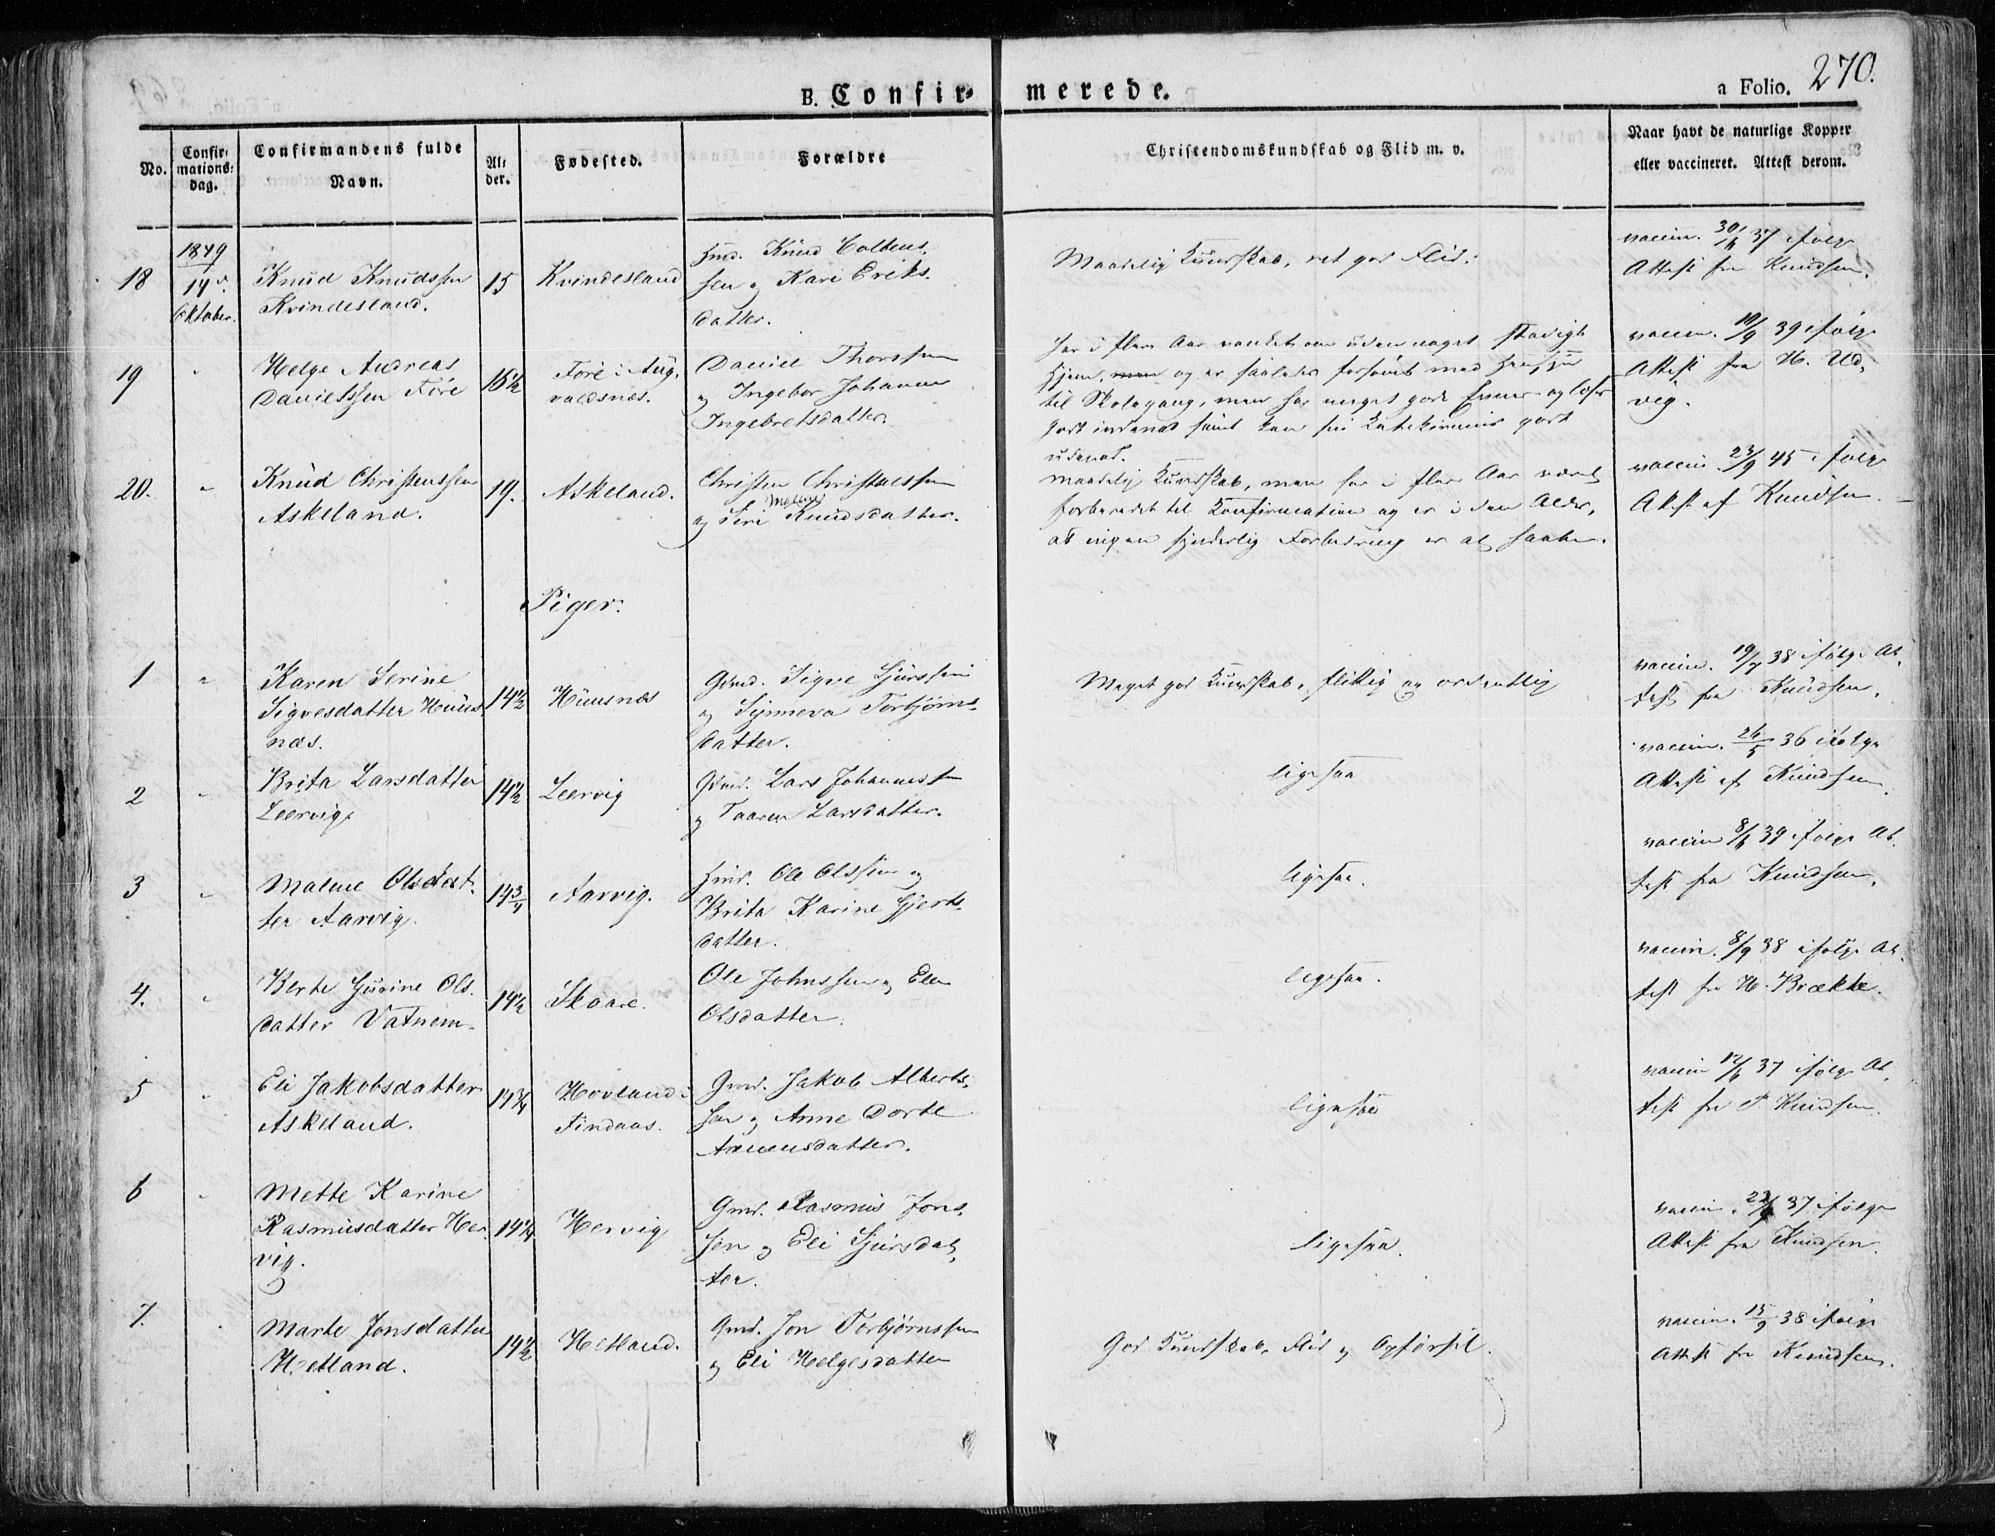 B. Confir-
merede.
a Folio. 270.
No.
Confir-
mations-
dag.
Confirmandens fulde
Navn.
Al-
der.
Fødested.
Forældre
Christendomskundskab og Flid m. v.
Naar havt de naturlige Kopper
eller vaccineret. Attest derom.
18
1849
14
Oktober.
Knud Knudssen
Kvindesland.
15
Kvindesland
Knud
sen og Kari Eriks
datter.
Maadelig Kundskab, ret god Flid.
vaccin. 30/6 37 ifølge
Attest fra Knudsen.
19
"
Helge Andreas
Danielssen Føre
16 1/2
Føre i Aug,
valdsnæs.
Daniel Thorssen
og Ingebor Johanne
Ingebretsdatter.
har i flere Aar vanket om uden noget stadigt
Hjem, men og er saaledes forsømt med Hensyn
til Skolegang, men har meget gode Evner og læser
godt indenad samt kan sin Katekismus godt
udenad.
vaccin. 19/9 39 ifølge
Attest fra H. Ud,
vig.
20.
"
Knud Christenssen
Askeland.
19.
Askeland.
Christen Christenssen
og Siri Knudsdatter.
maadelig Kundskab, men har i flere Aar været
forberedet til Konfirmation og er i den Alder,
at ingen synderlig Forbedring er at haabe.
vaccin. 23/9 45 ifølge
Attest af Knudsen.
Piger.
1
"
Karen Serine
Sigvesdatter Huus
næs.
14 1/2
Huusnæs
Gmd. Sigve Sjurssen
og Synneva Torbjørns-
datter.
Meget god Kundskab, flittig og ordentlig
vaccin. 19/7 38 ifølge At,
test fra Knudsen.
2
"
Brita Larsdatter
Leervig
14 1/2
Leervig
Gmd. Lars Johannessen
og Taaren Larsdatter.
ligesaa
vaccin. 26/5 36 ifølge
Attest af Knudsen.
3
"
Malene Olsdat,
ter Aarvig.
14 3/4
Aarvig.
Hmd. Ole Olssen og
Brita Karine Gjerts-
datter.
ligesaa.
vaccin 8/6 39 ifølge At,
test fra Knudsen.
4.
"
Berte Gurine Ols
datter Vatnem.
14 1/2
Skaare.
Ole Johnssen og Elen
Olsdatter.
ligesaa.
vaccin. 8/9 38 ifølge At,
test fra H. Brække.
5
"
Eli Jakobsdatter
Askeland.
14 3/4
Hovland i
Findaas.
Gmd. Jakob Alberts,
sen og Anne Dorte
datter.
ligesaa
vaccin 12/6 37 ifølge At,
test fra P. Knudsen.
6
"
Mette Karine
Rasmusdatter Her
vig.
14 1/4
Hervig
Gmd. Rasmus Jons,
sen og Eli Sjursdat,
ter.
ligesaa.
vaccin. 37 ifølge
Attest fra Knudsen.
7.
"
Marte Jonsdatter
Hetland.
14 1/2
Hetland.
Gmd. Jon Torbjørnssen
og Eli Helgesdatter
God Kundskab, Flid og Opførsel.
vaccin. 15/9 38 ifølge
Attest fra Knudsen.